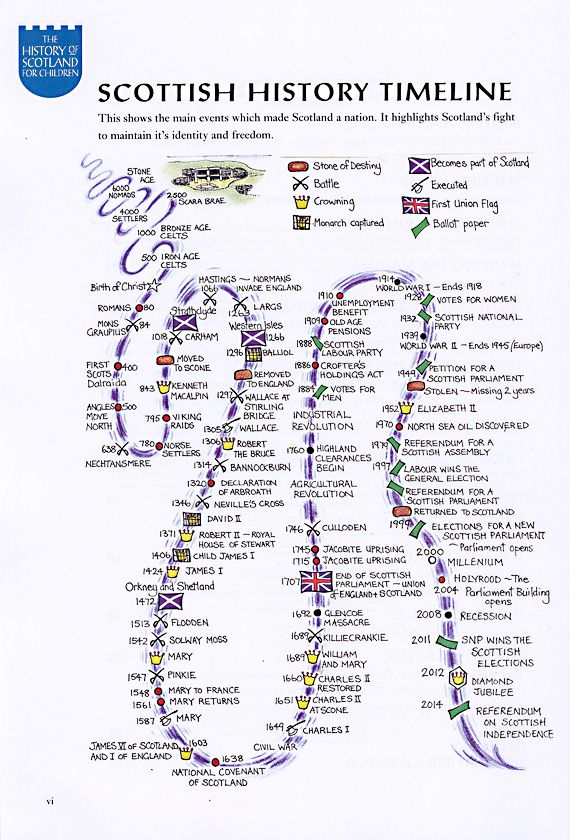 THE
HISTORY OF
SCOTLAND
FOR CHILDREN
SCOTTISH HISTORY TIMELINE
This shows the main events which made Scotland a nation. It highlights Scotland's fight
to maintain it's identity and freedom.
Stone of Destiny
Battle
Crowning
Monarch captured
Becomes part of Scotland
Executed
First Union Flag
Ballot paper
STONE
AGE
6000
NOMADS
2500
SCARA BRAE
4000
SETTLERS
1000 BRONZE AGE
CELTS
500 IRON AGE
CELTS
Birth of Christ
ROMANS 80
MONS
GRAUPIUS 84
FIRST
SCOTS 400
Dalraida
ANGLES 500
MOVE
NORTH
638
NECHTANSMERE
780 NORSE
SETTLERS
795 VIKING
RAIDS
843 KENNETH
MACALPIN
MOVED
TO SCONE
1018 CARHAM
Strathclyde
HASTINGS - NORMANS
1066 INVADE ENGLAND
LARGS
1263
Western Isles
1266
1296 BALLIOL
REMOVED
TO ENGLAND
1297 WALLACE AT
STIRLING
BRIDGE
1305 WALLACE
1306 ROBERT
THE BRUCE
1314 BANNOCKBURN
1320 DECLARATION
OF ARBROATH
1346 NEVILLE'S CROSS
DAVID II
1371 ROBERT II - ROYAL
HOUSE OF STEWART
1406 CHILD JAMES I
1424 JAMES I
Orkney and Shetland
1472
1513 FLODDEN
1542 SOLWAY MOSS
MARY
1547 PINKIE
1548 MARY TO FRANCE
1561 MARY RETURNS
1587 MARY
JAMES VI OF SCOTLAND 1603
AND I OF ENGLAND
1638
NATIONAL COVENANT
OF SCOTLAND
CIVIL WAR
1649 CHARLES I
1651 CHARLES II
AT SCONE
1660 CHARLES II
RESTORED
1689 WILLIAM
AND MARY
1689 KILLIECRANKIE
1692 GLENCOE
MASSACRE
1707 END OF SCOTTISH
PARLIAMENT - UNION
OF ENGLAND & SCOTLAND
1715 JACOBITE UPRISING
1745 JACOBITE UPRISING
1746 CULLODEN
AGRICULTURAL
REVOLUTION
1760 HIGHLAND
CLEARANCES
BEGIN
INDUSTRIAL
REVOLUTION
1884 VOTES FOR
MEN
1886 CROFTER'S
HOLDINGS ACT
1888 SCOTTISH
LABOUR PARTY
1909 OLD AGE
PENSIONS
1910 UNEMPLOYMENT
BENEFIT
1914
WORLD WAR I - Ends 1918
1928 VOTES FOR WOMEN
1932 SCOTTISH NATIONAL
PARTY
1939
WORLD WAR II - Ends 1945 (Europe)
1949 PETITION FOR A
SCOTTISH PARLIAMENT
STOLEN - Missing 2 years
1952 ELIZABETH II
1970 NORTH SEA OIL DISCOVERED
1979 REFERENDUM FOR A
SCOTTISH ASSEMBLY
1997 LABOUR WINS THE
GENERAL ELECTION
REFERENDUM FOR A
SCOTTISH PARLIAMENT
RETURNED TO SCOTLAND
1999 ELECTIONS FOR A NEW
SCOTTISH PARLIAMENT
2000 Parliament opens
MILLENIUM
HOLYROOD - The
2004 Parliament Building
opens
2008 RECESSION
2011 SNP WINS THE
SCOTTISH
ELECTIONS
2012 DIAMOND
JUBILEE
2014 REFERENDUM
ON SCOTTISH
INDEPENDENCE
vi